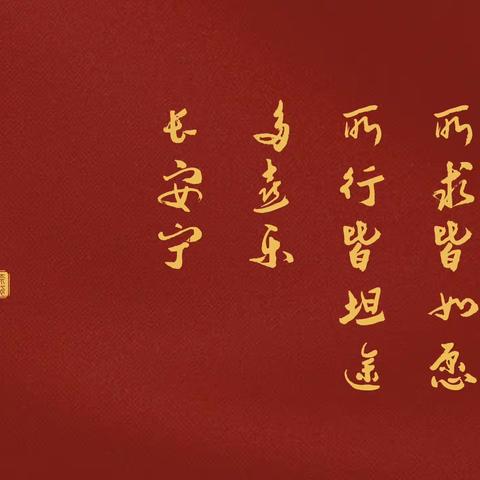 所求皆如愿
所行皆坦途
多喜乐
长安宁